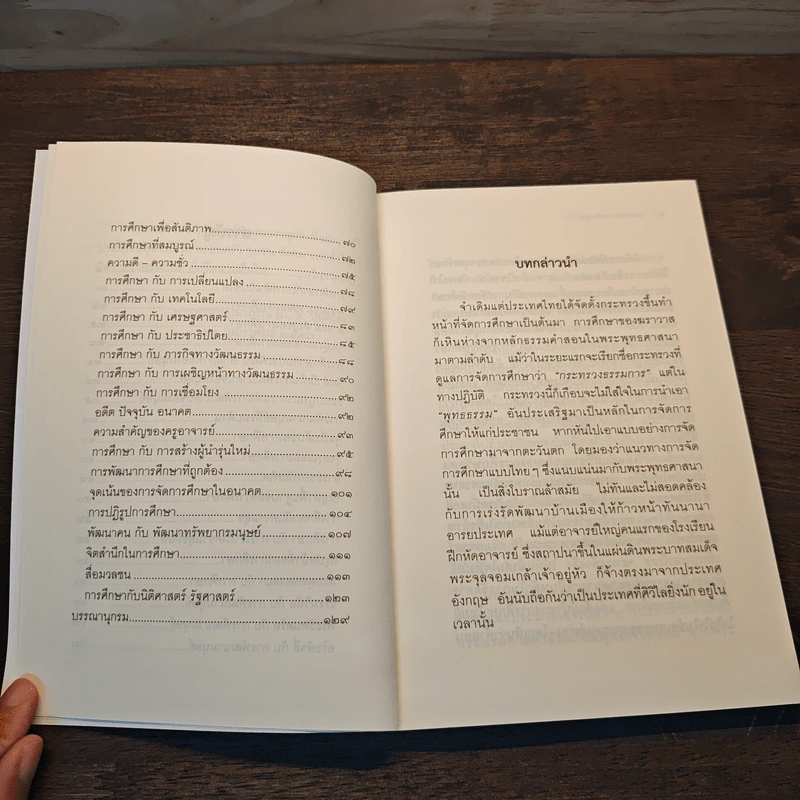 การศึกษาเพื่อสันติภาพ........................................๗๐
การศึกษาที่สมบูรณ์.............................................๗๒
ความดี – ความชั่ว................................................๗๕
การศึกษา กับ การเปลี่ยนแปลง..............................๗๘
การศึกษา กับ เทคโนโลยี......................................๗๙
การศึกษา กับ เศรษฐศาสตร์..................................๘๓
การศึกษา กับ ประชาธิปไตย..................................๘๕
การศึกษา กับ ภารกิจทางวัฒนธรรม.......................๘๘
การศึกษา กับ การเผชิญหน้าทางวัฒนธรรม..............๙๐
การศึกษา กับ การเชื่อมโยง ..................................๙๒
อดีต ปัจจุบัน อนาคต............................................๙๒
ความสำคัญของครูอาจารย์....................................๙๓
การศึกษา กับ การสร้างผู้นำรุ่นใหม่........................๙๕
การพัฒนาการศึกษาที่ถูกต้อง ................................๙๘
จุดเน้นของการจัดการศึกษาในอนาคต....................๑๐๑
การปฏิรูปการศึกษา............................................๑๐๔
พัฒนาคน กับ พัฒนาทรัพยากรมนุษย์...................๑๐๗
จิตสำนึกในการศึกษา..........................................๑๑๑
สื่อมวลชน .........................................................๑๑๓
การศึกษากับนิติศาสตร์ รัฐศาสตร์.........................๑๒๓
บรรณานุกรม......................................................๑๒๙
บทกล่าวนำ
จำเดิมแต่ประเทศไทยได้จัดตั้งกระทรวงขึ้นทำ
หน้าที่จัดการศึกษาเป็นต้นมา การศึกษาของฆราวาส
ก็เหินห่างจากหลักธรรมคำสอนในพระพุทธศาสนา
มาตามลำดับ แม้ว่าในระยะแรกจะเรียกชื่อกระทรวงที่
ดูแลการจัดการศึกษาว่า “กระทรวงธรรมการ” แต่ใน
ทางปฏิบัติ กระทรวงนี้ก็เกือบจะไม่ใส่ใจในการนำเอา
“พุทธธรรม” อันประเสริฐมาเป็นหลักในการจัดการ
ศึกษาให้แก่ประชาชน หากหันไปเอาแบบอย่างการจัด
การศึกษามาจากตะวันตก โดยมองว่าแนวทางการจัด
การศึกษาแบบไทย ๆ ซึ่งแนบแน่นมากับพระพุทธศาสนา
นั้น เป็นสิ่งโบราณล้าสมัย ไม่ทันและไม่สอดคล้อง
กับการเร่งรัดพัฒนาบ้านเมืองให้ก้าวหน้าทันนานา
อารยประเทศ แม้แต่อาจารย์ใหญ่คนแรกของโรงเรียน
ฝึกหัดอาจารย์ ซึ่งสถาปนาขึ้นในแผ่นดินพระบาทสมเด็จ
พระจุลจอมเกล้าเจ้าอยู่หัว ก็จ้างตรงมาจากประเทศ
อังกฤษ อันนับถือกันว่าเป็นประเทศที่ศิวิไลยิ่งนัก อยู่ใน
เวลานั้น